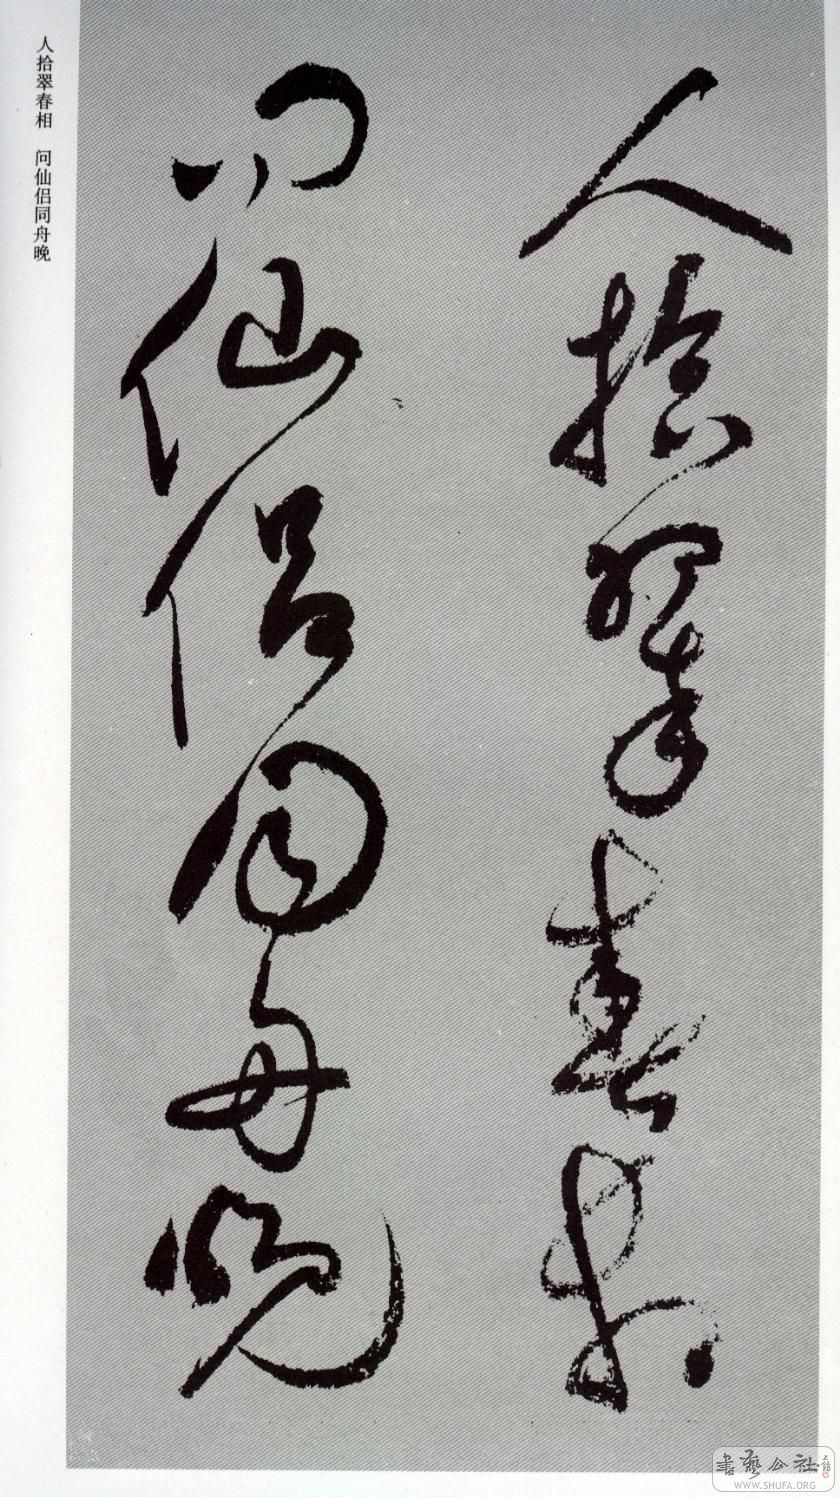 人拾翠春相
问仙侣同舟晚
人拾翠春相 问仙侣同舟晚
書藝公社
WWW.SHUFA.ORG